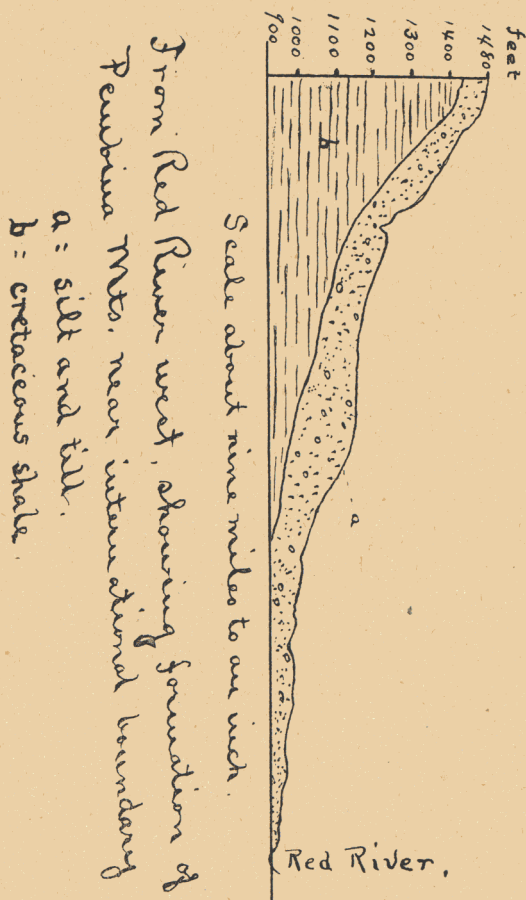 feet
1480
1400
1300
1200
1100
1000
900
b
a
Red River.
Scale about nine miles to an inch.
From Red River west, showing formation of
Pembina Mts. near international boundary
a = silt and till.
b = cretaceous shale.